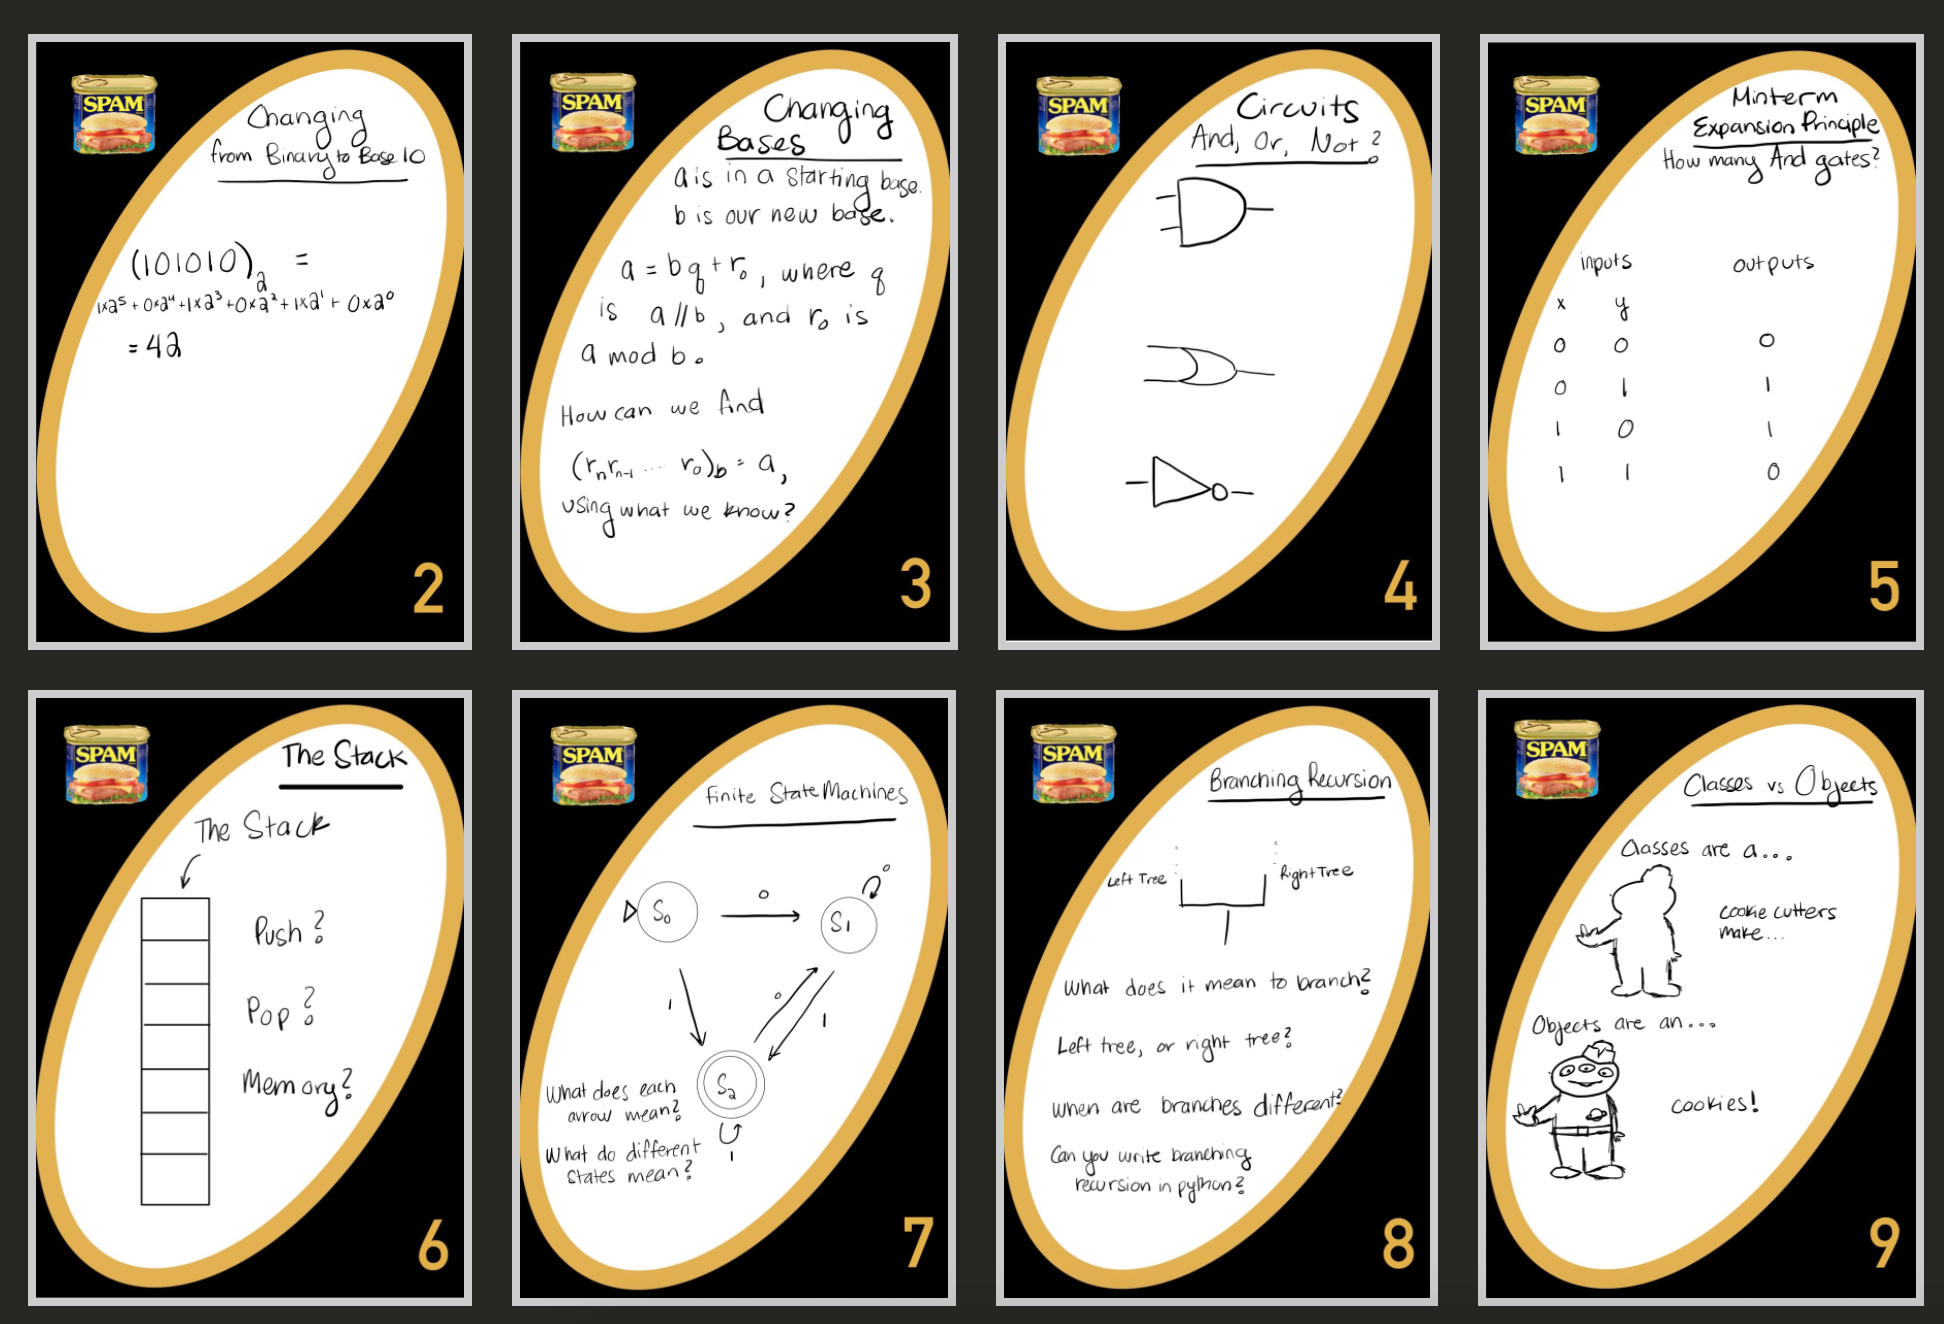 SPAM
Changing
from Binary to Base 10
(101010)₂ =
1x2⁵ + 0x2⁴ + 1x2³ + 0x2² + 1x2¹ + 0x2⁰
= 42
2
SPAM
Changing
Bases
a is in a starting base.
b is our new base.
a = bq + r₀, where q
is a//b, and r₀ is
a mod b.
How can we find
(rₙrₙ₋₁ ... r₀)b = a,
using what we know?
3
SPAM
Circuits
And, Or, Not?
4
SPAM
Minterm
Expansion Principle
How many And gates?
inputs outputs
x y
0 0 0
0 1 1
1 0 1
1 1 0
5
SPAM
The Stack
The Stack
Push?
Pop?
Memory?
6
SPAM
Finite State Machines
0
S₀ 0 S₁
1 0 1
S₂
What does each
arrow mean?
1
What do different
states mean?
7
SPAM
Branching Recursion
Left Tree Right Tree
What does it mean to branch?
Left tree, or right tree?
When are branches different?
Can you write branching
recursion in python?
8
SPAM
Classes vs Objects
Classes are a...
cookie cutters
make...
Objects are an...
cookies!
9